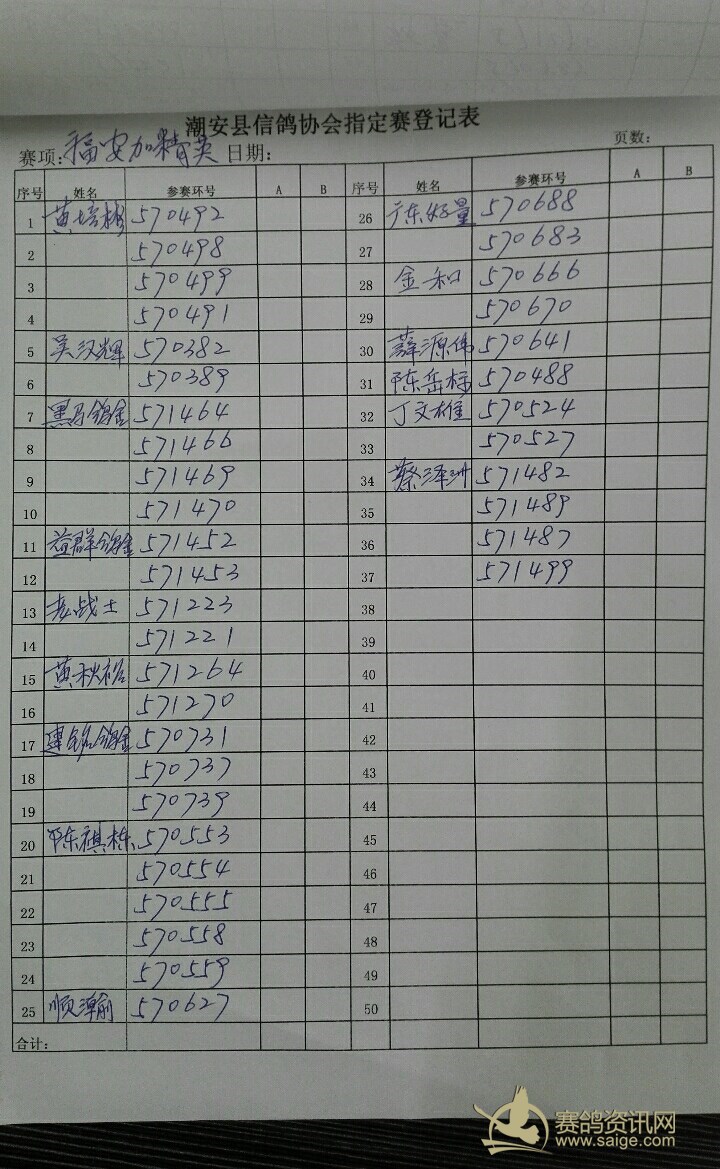 潮安县信鸽协会指定赛登记表
赛项:福安加精英 日期: 页数:
序号 姓名 参赛环号 A B 序号 姓名 参赛环号 A B
1 黄培彬 570492 26 广东好量 570688
2 570498 27 570683
3 570499 28 金和 570666
4 570491 29 570670
5 吴汉辉 570382 30 薛源伟 570641
6 570389 31 陈岳标 570488
7 571464 32 丁文雄 570524
8 571466 33 570527
9 571469 34 蔡泽洲 571482
10 571470 35 571489
11 益群鸽舍 571452 36 571487
12 571453 37 571499
13 老战士 571223 38
14 571221 39
15 黄秋裕 571264 40
16 571270 41
17 建铭鸽舍 570731 42
18 570737 43
19 570739 44
20 陈祺栋 570553 45
21 570554 46
22 570555 47
23 570558 48
24 570559 49
25 顺瀚 570627 50
合计:
赛鸽资讯网
www.saige.com